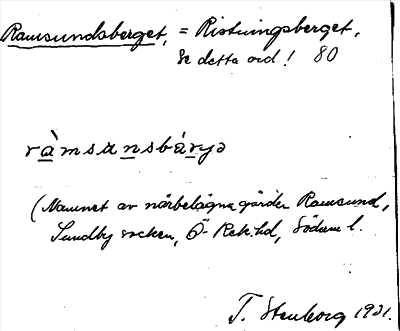 Ramsundsberget, = Ristningsberget,
Se detta ord! 80
ràmsunsbárya
(Namnet av närbelägna gården Ramsund,
Sundby socken, Ö-Rek. hd, Söderm. l.
T. Stenborg 1921.